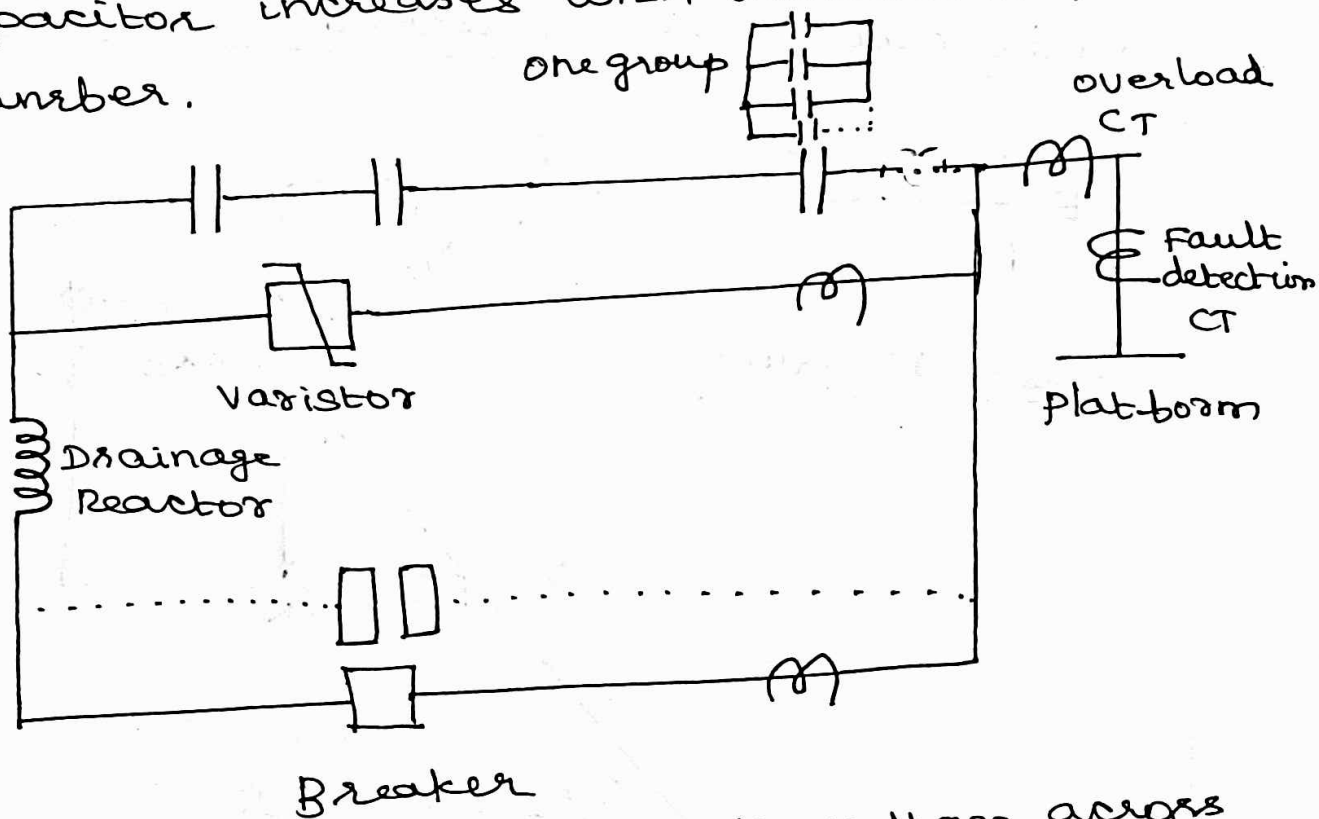 pacitor increases
number.
one group
overload
CT
Fault
detection
CT
Platform
Varistor
Drainage
Reactor
Breaker
across